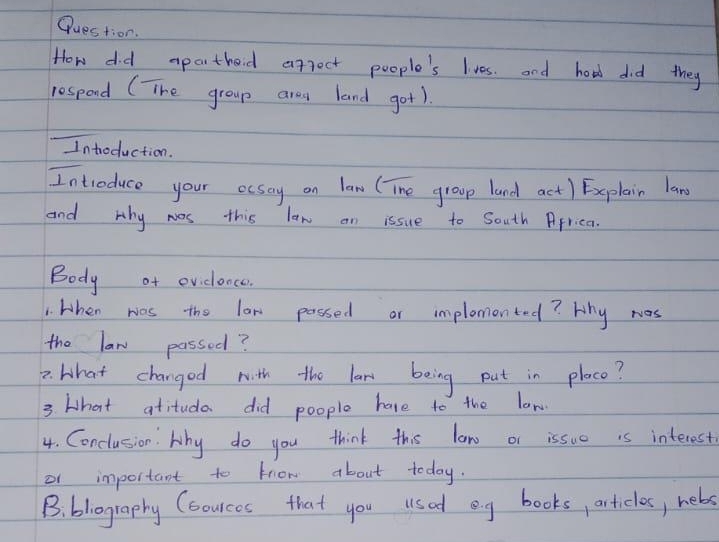 Question.
How did apartheid affect people's lives. and how did they
respond (The group area land got).
Introduction.
Introduce your essay on law (The group land act) Explain law
and why was this law an issue to South Africa.
Body of evidence.
1. When was the law passed or implemented? Why was
the law passed?
2. What changed with the law being put in place?
3. What atitude did people have to the law.
4. Conclusion: Why do you think this law or issue is interesti
or important to know about today.
Bibliography (sources that you used e.g books, articles, webs